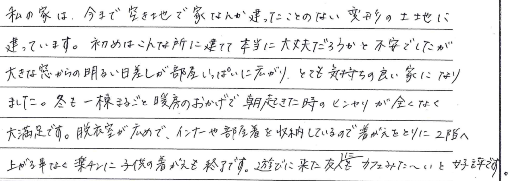 私の家は、今まで空き地で家なんか建ったことのない変形の土地に
建っています。初めはこんな所に建てて本当に大丈夫だろうかと不安でしたが
大きな窓からの明るい日差しが部屋いっぱいに広がり、とても気持ちの良い家になり
ました。冬も一棟まるごと暖房のおかげで朝起きた時のヒンヤリが全くなく
大満足です。脱衣室が広めで、インナーや部屋着を収納しているので着がえをとりに2階へ
上がる事なく楽チンに子供の着がえも終了です。遊びに来た友人にもカフェみた〜いと好評です。